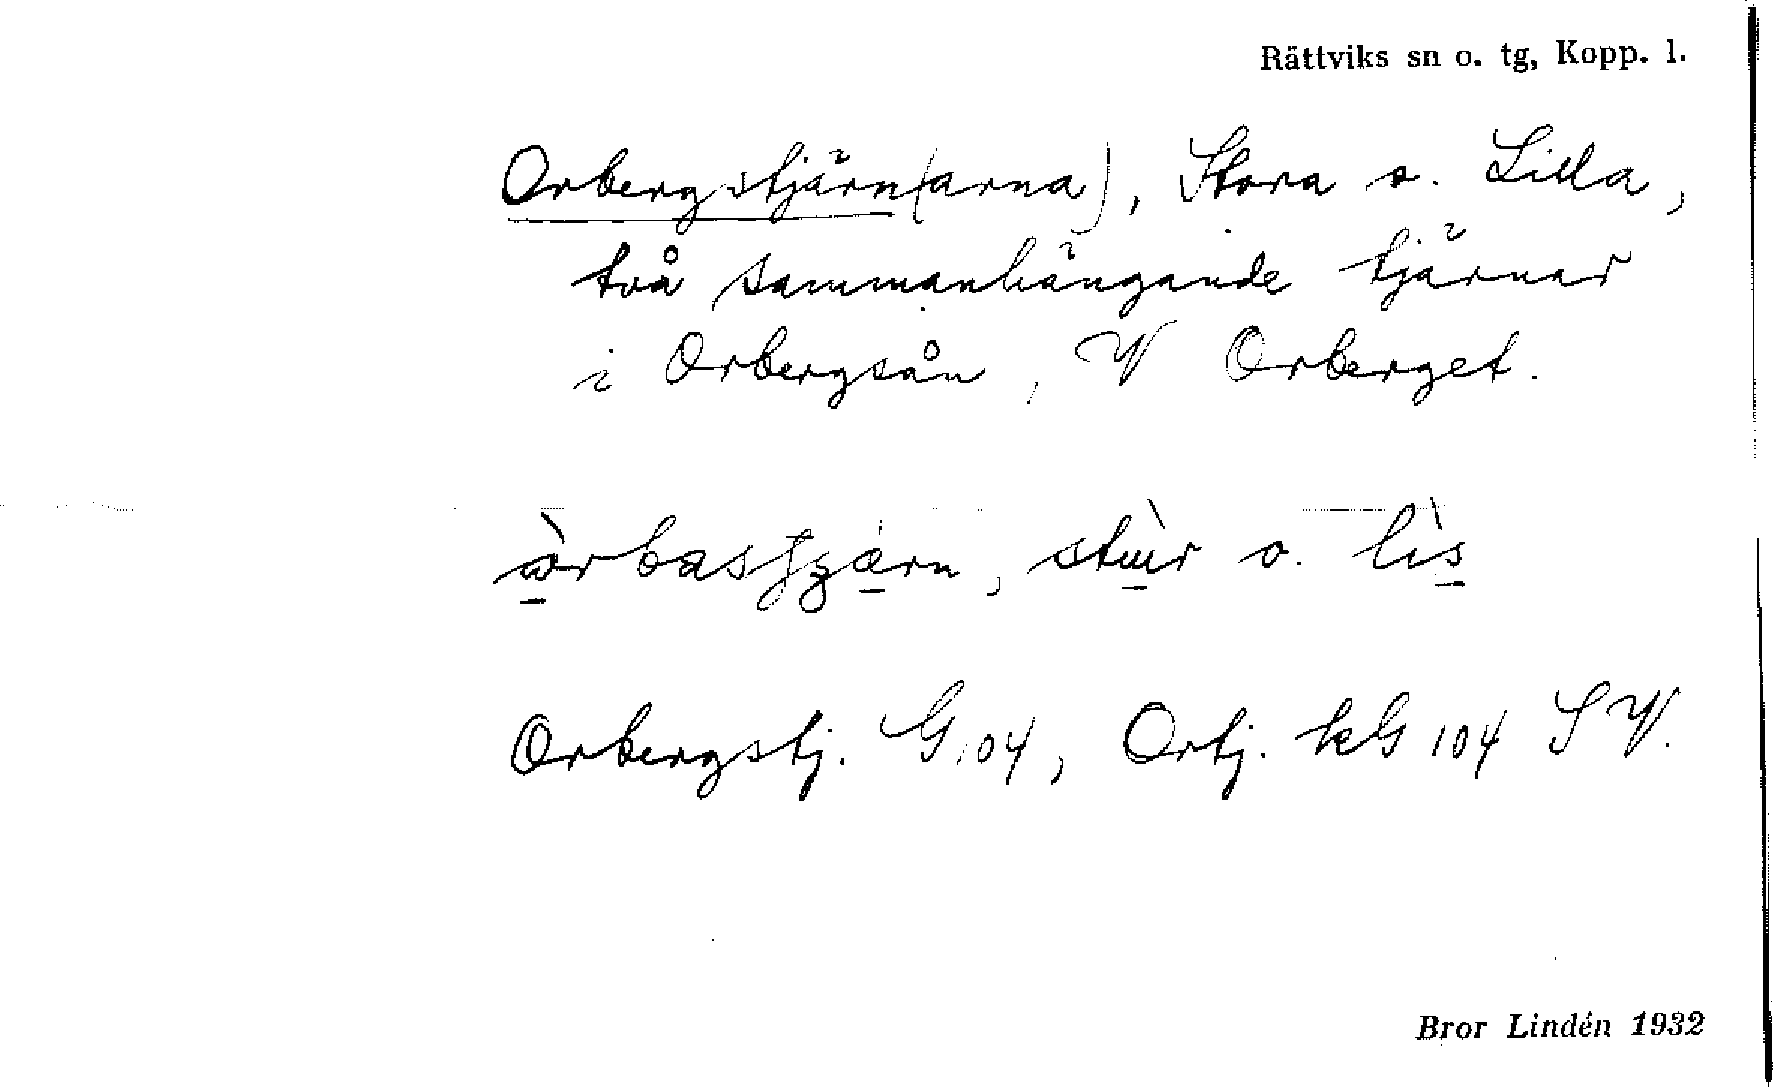 Rättviks sn o. tg, Kopp. l.
Orbergstjärn(arna), Stora o. Lilla,
två sammanhängande tjärnar
i Orbergsån, V Orberget.
o. lìs
Orbergstj. G 104, Ortj. kG 104 SV.
Bror Lindén 1932